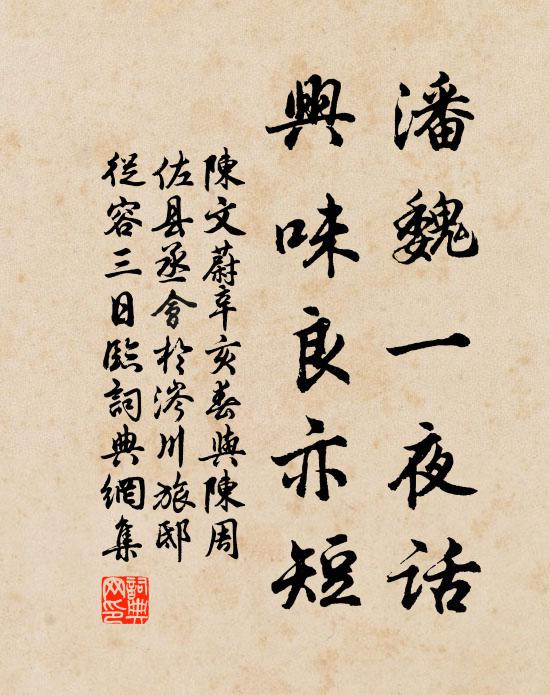 潘魏一夜话
興味良亦短
陳文蔚辛亥春與陳周
佐县丞會於涔川旅邸
從容三日臨詞典網集
詞典网印